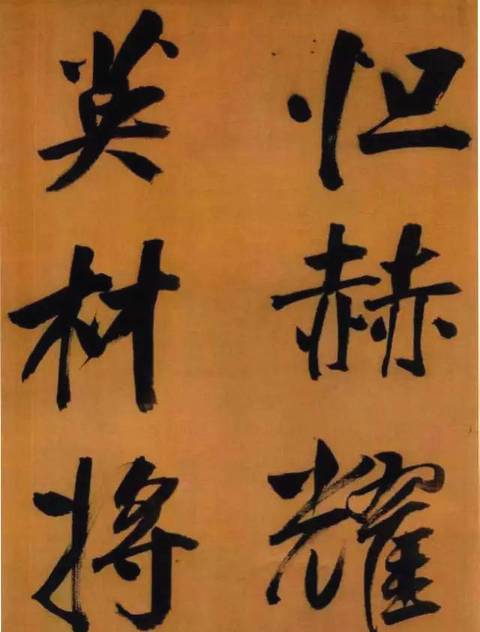 怛赫耀
英材將